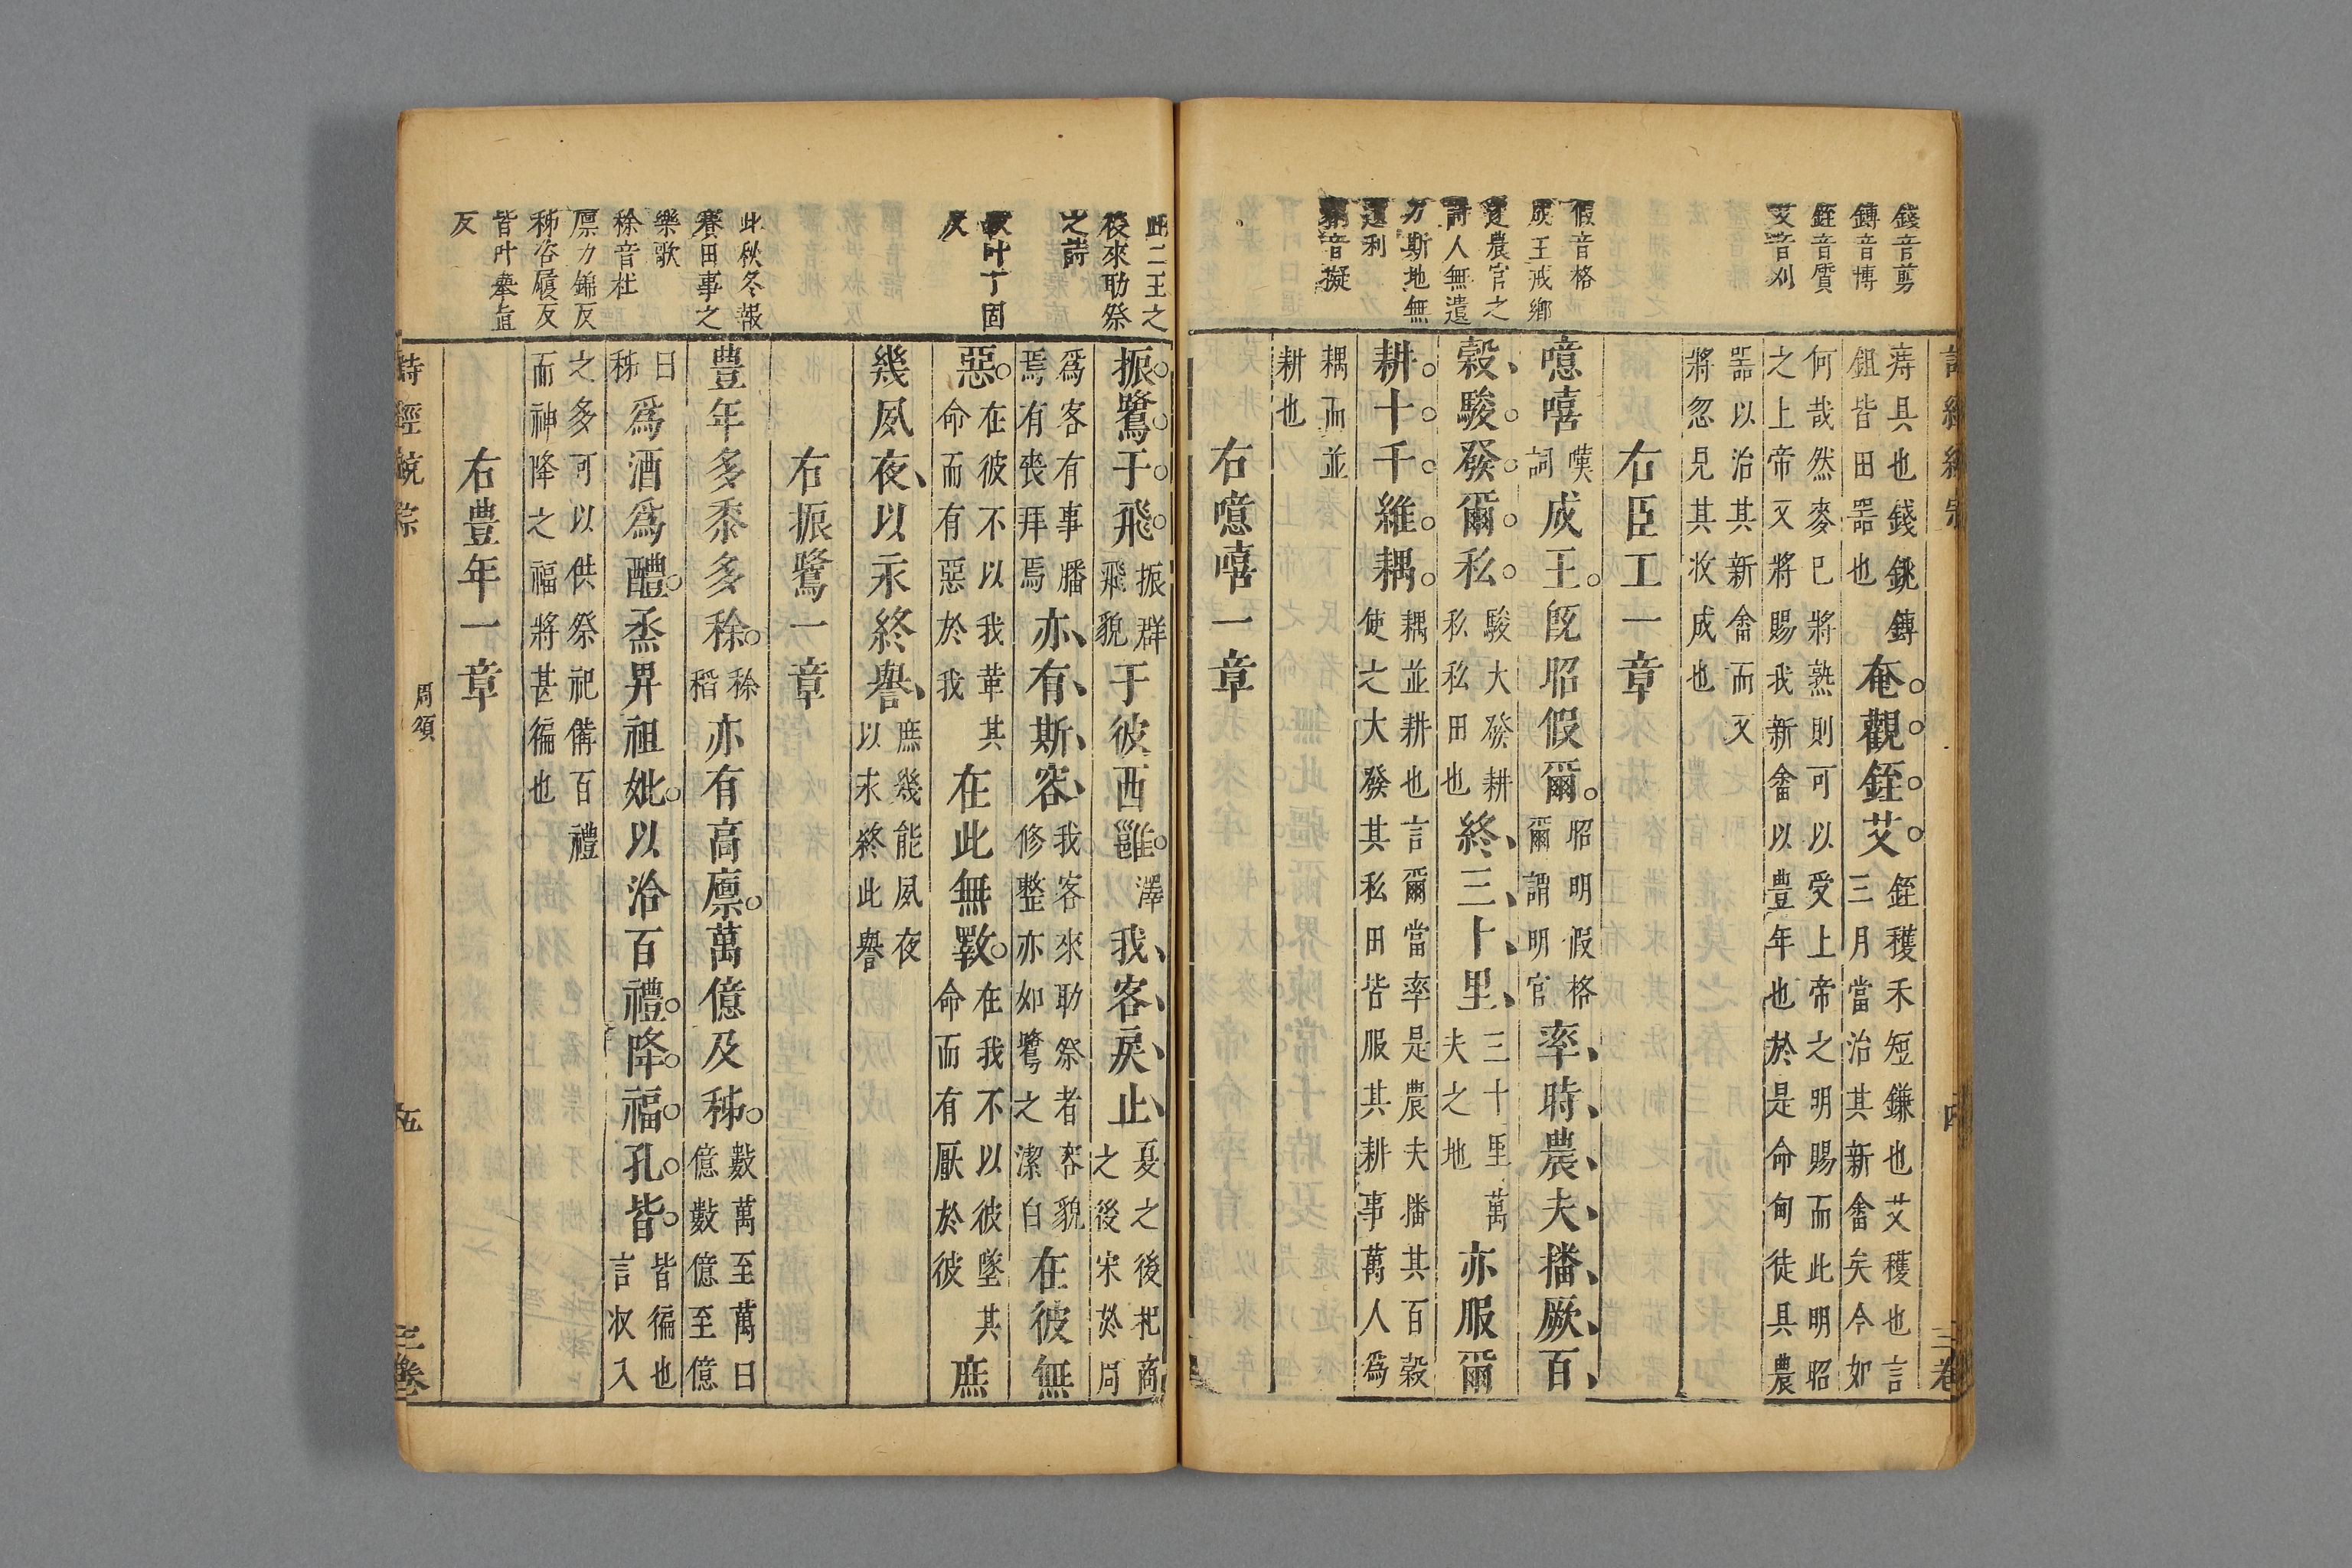 錢音剪
鎛音博
銍音質
艾音刈
假音格
成王戒鄉
遂農官之
詩人無遺
力斯地無
遺利
音擬
三卷
庤具也錢銚鎛
鉏皆田噐也
奄觀銍艾
銍穫禾短鎌也艾穫也言
三月當治其新畬矣今如
何哉然麥已將熟則可以受上帝之明賜而此明昭
之上帝又將賜我新畬以豊年也於是命甸徒具農
噐以治其新畬而又
將忽見其收成也
右臣工一章
噫嘻
嘆
詞
成王旣昭假爾
昭明假格
爾謂明官
率時農夫播厥百
穀駿發爾私
駿大發耕
私私田也
終三十里
三十里萬
夫之地
亦服爾
耕十千維耦
耦並耕也言爾當率是農夫播其百穀
使之大發其私田皆服其耕事萬人爲
耦而並
耕也
右噫嘻一章
此二王之
後來助祭
之詩
叶丁固
反
此秋冬報
賽田事之
樂歌
稌音杜
廪力錦反
秭咨履反
皆叶舉里
反
振鷺于飛
振群
飛貌
于彼西雝
澤
我客戾止
夏之後杞商
之後宋於周
爲客有事膰
焉有喪拜焉
亦有斯容
我客來助祭者容貌
修整亦如鷺之潔白
在彼無
惡
在彼不以我革其
命而有惡於我
在此無斁
在我不以彼墜其
命而有厭於彼
庶
幾夙夜以永終譽
庶幾能夙夜
以求終此譽
右振鷺一章
豊年多黍多稌
稌
稻
亦有高廪萬億及秭
數萬至萬曰
億數億至億
曰
秭
爲酒爲醴烝畀祖妣以洽百禮降福孔皆
皆徧也
言收入
之多可以供祭祀備百禮
而神降之福將甚徧也
右豊年一章
詩經
周頌
五
三卷